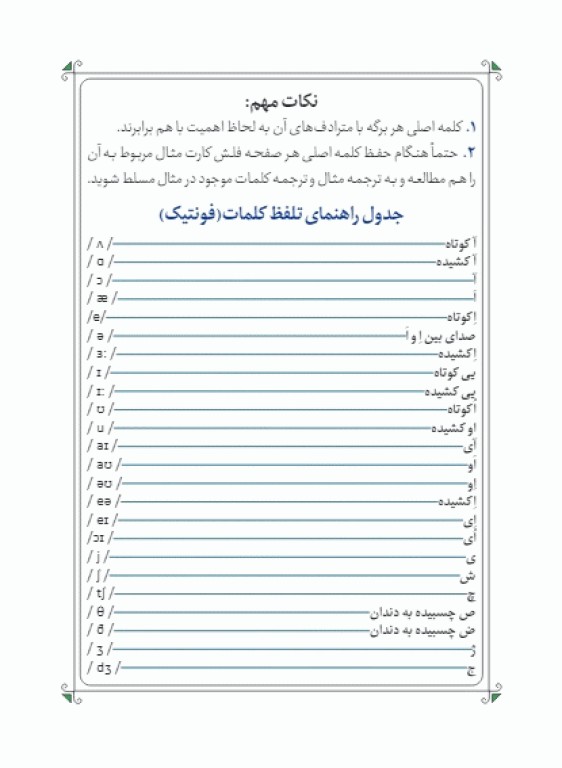 نکات مهم:
۱. کلمه اصلی هر برگه با مترادف‌های آن به لحاظ اهمیت با هم برابرند.
۲. حتماً هنگام حفظ کلمه اصلی هر صفحه فلش کارت مثال مربوط به آن
را هم مطالعه و به ترجمه مثال و ترجمه کلمات موجود در مثال مسلط شوید.
جدول راهنمای تلفظ کلمات(فونتیک)
آ کوتاه / ʌ /
آ کشیده / ɑ /
/ ɔ /
اَ / æ /
اِ کوتاه /e/
صدای بین اِ و اَ / ə /
اِ کشیده / ɜ: /
یی کوتاه / ɪ /
یی کشیده / ɪ: /
اُ کوتاه / ʊ /
او کشیده / u /
آی / aɪ /
اَو / aʊ /
اِو / əʊ /
اِ کشیده / eə /
اِی / eɪ /
اُی /ɔɪ /
ی / j /
ش / ʃ /
چ / tʃ /
ص چسبیده به دندان / θ /
ض چسبیده به دندان / ð /
ژ / ʒ /
ج / dʒ /